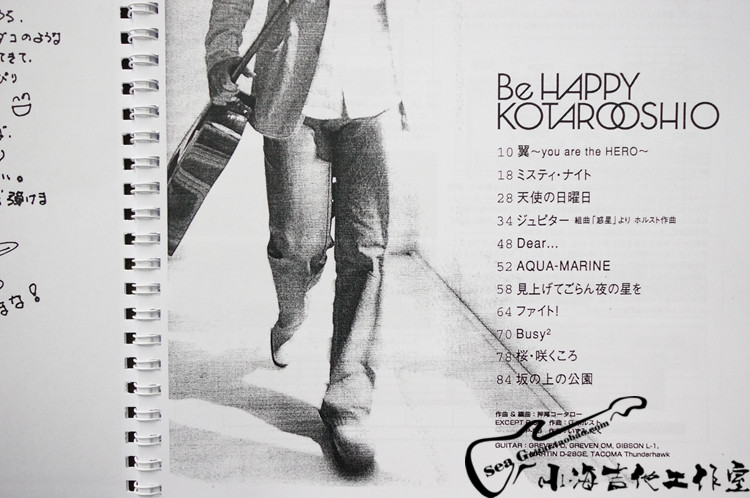 ダコのような
できて.
Be HAPPY
KOTARO OSHIO
10 翼〜you are the HERO〜
18 ミスティ・ナイト
28 天使の日曜日
34 ジュピター 組曲「惑星」より ホルスト作曲
48 Dear...
52 AQUA-MARINE
58 見上げてごらん夜の星を
64 ファイト!
70 Busy²
78 桜・咲くころ
84 坂の上の公園
作曲 & 編曲：押尾コータロー
EXCEPT
GUITAR : GREVEN D, GREVEN OM, GIBSON L-1,
MARTIN D-28GE, TACOMA Thunderhawk
弾けま
まな!
Sea Guitar.taobao.com
小海吉他工作室